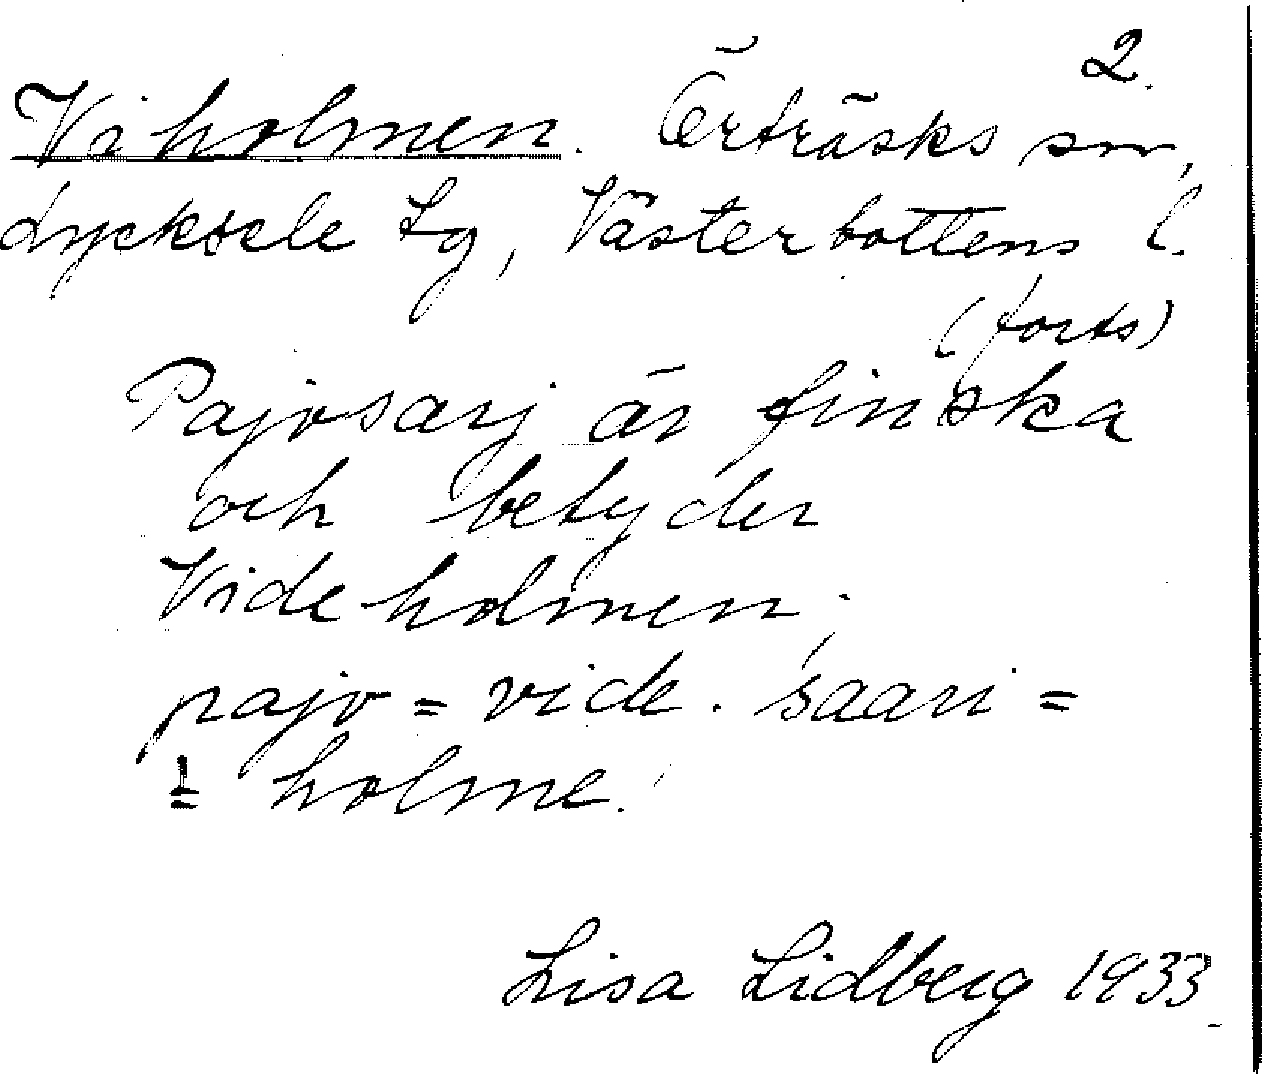 2.
Viholmen. Örträsks sn,
Lycksele Lg, Västerbottens l.
(forts)
Pajosarj är finska
och betyder
Videholmen.
pajo = vide. saari =
= holme.
Lisa Lidberg 1933